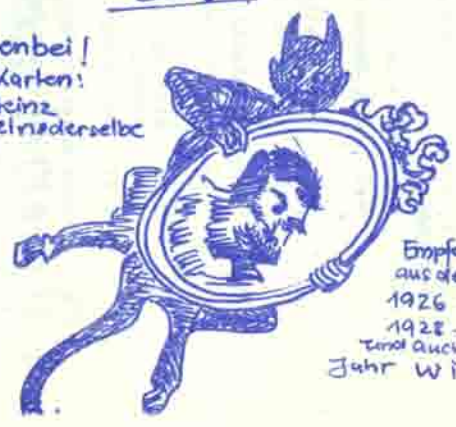 onbei!
Karten:
einz
elnoderselbe
Empfe
aus de
1926
1928
und auch
Jahr wi